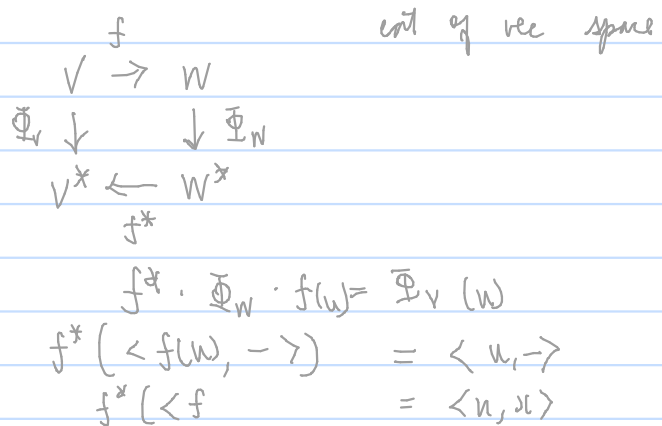 f
cat of vec space
V → W
Φ_V ↓ ↓ Φ_W
V* ← W*
f*
f* · Φ_W · f(u) = Φ_V (u)
f* ( < f(u), - > ) = < u, - >
f* ( < f = < u, x >